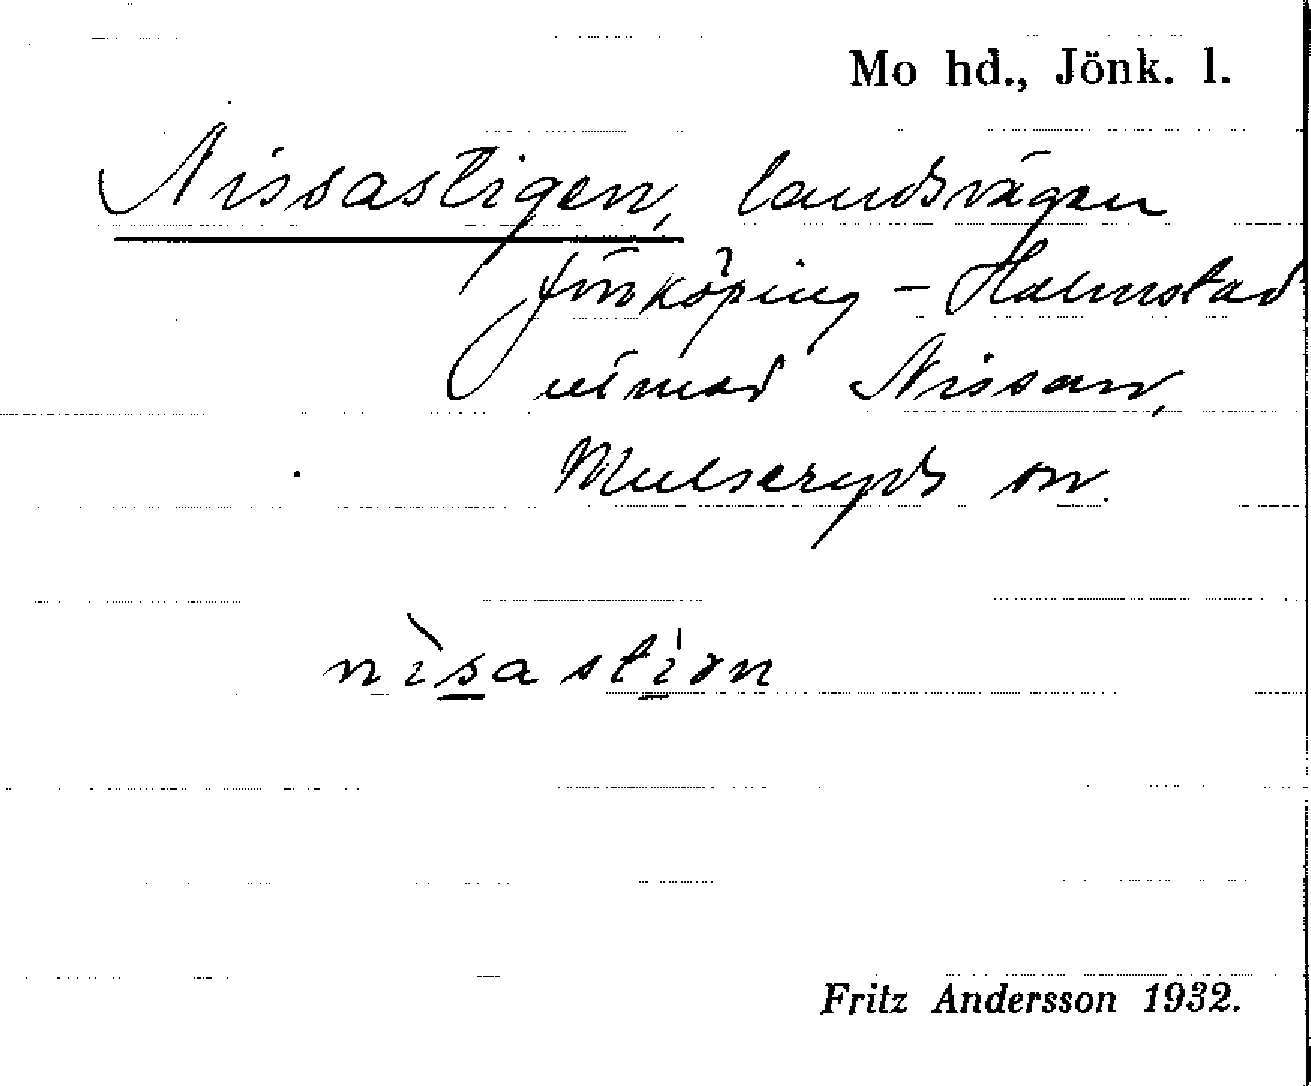 Mo hd., Jönk. l.
Nissastigen, landsvägen
Jönköping - Halmstad
utmed Nissan,
Mulseryds sn.
nìsa stiɜn
Fritz Andersson 1932.